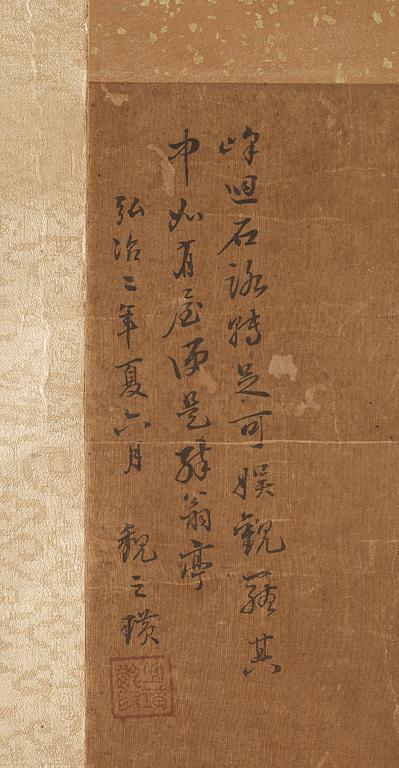 峰迴石路轉足可娛觀聽其
中如有屋便是醉翁亭
弘治二年夏六月 魏之璜